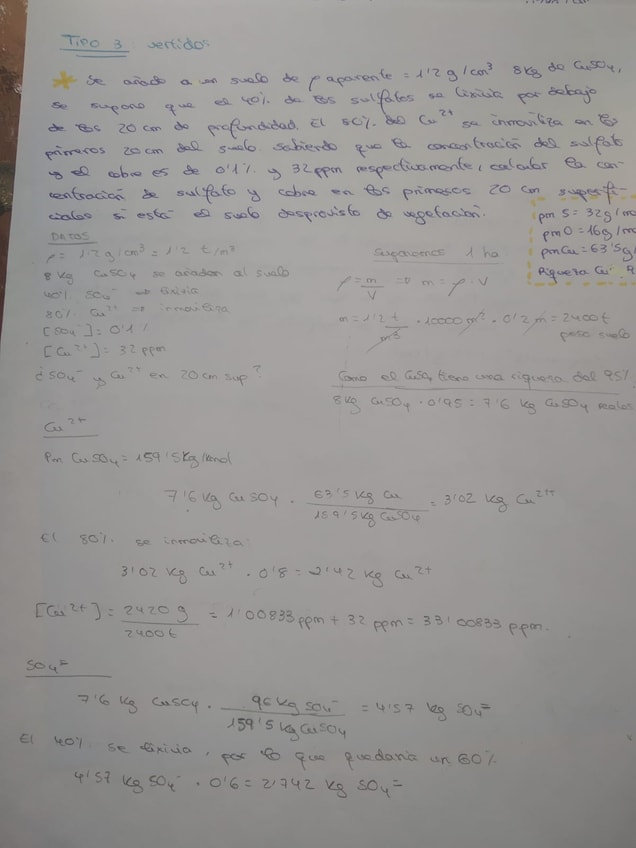 TIPO 3: vertidos
* Se añade a un suelo de ρ aparente = 1'2 g/cm³ 8 Kg de CuSO₄,
se supone que el 40% de los sulfatos se lixivia por debajo
de los 20 cm de profundidad. El 80% del Cu²⁺ se inmoviliza en los
primeros 20 cm del suelo. Sabiendo que la concentración del sulfato
y el cobre es de 0'1% y 32 ppm respectivamente, calcular la con-
centración de sulfato y cobre en los primeros 20 cm superfi-
ciales si está el suelo desprovisto de vegetación.
pm S = 32 g/mo
pm O = 16 g/mo
pm Cu = 63'5 g/
Riqueza Cu
DATOS
ρ = 1'2 g/cm³ = 1'2 t/m³
8 Kg CuSO₄ se añaden al suelo
40% SO₄⁼ ⇒ lixivia
80% Cu²⁺ ⇒ inmoviliza
[SO₄⁼] = 0'1%
[Cu²⁺] = 32 ppm
¿SO₄⁼ y Cu²⁺ en 20 cm sup?
Suponemos 1 ha
ρ = m/V ⇒ m = ρ · V
m = 1'2 t/m³ · 10000 m² · 0'2 m = 2400 t
peso suelo
Como el CuSO₄ tiene una riqueza del 95%
8 Kg CuSO₄ · 0'95 = 7'6 Kg CuSO₄ reales
Cu²⁺
Pm CuSO₄ = 159'5 Kg/Kmol
7'6 Kg CuSO₄ · 63'5 Kg Cu / 159'5 Kg CuSO₄ = 3'02 Kg Cu²⁺
El 80% se inmoviliza:
3'02 Kg Cu²⁺ · 0'8 = 2'42 Kg Cu²⁺
[Cu²⁺] = 2420 g / 2400 t = 1'00833 ppm + 32 ppm = 33'00833 ppm.
SO₄⁼
7'6 Kg CuSO₄ · 96 Kg SO₄⁼ / 159'5 Kg CuSO₄ = 4'57 Kg SO₄⁼
El 40% se lixivia, por lo que quedaría un 60%
4'57 Kg SO₄⁼ · 0'6 = 2'742 Kg SO₄⁼